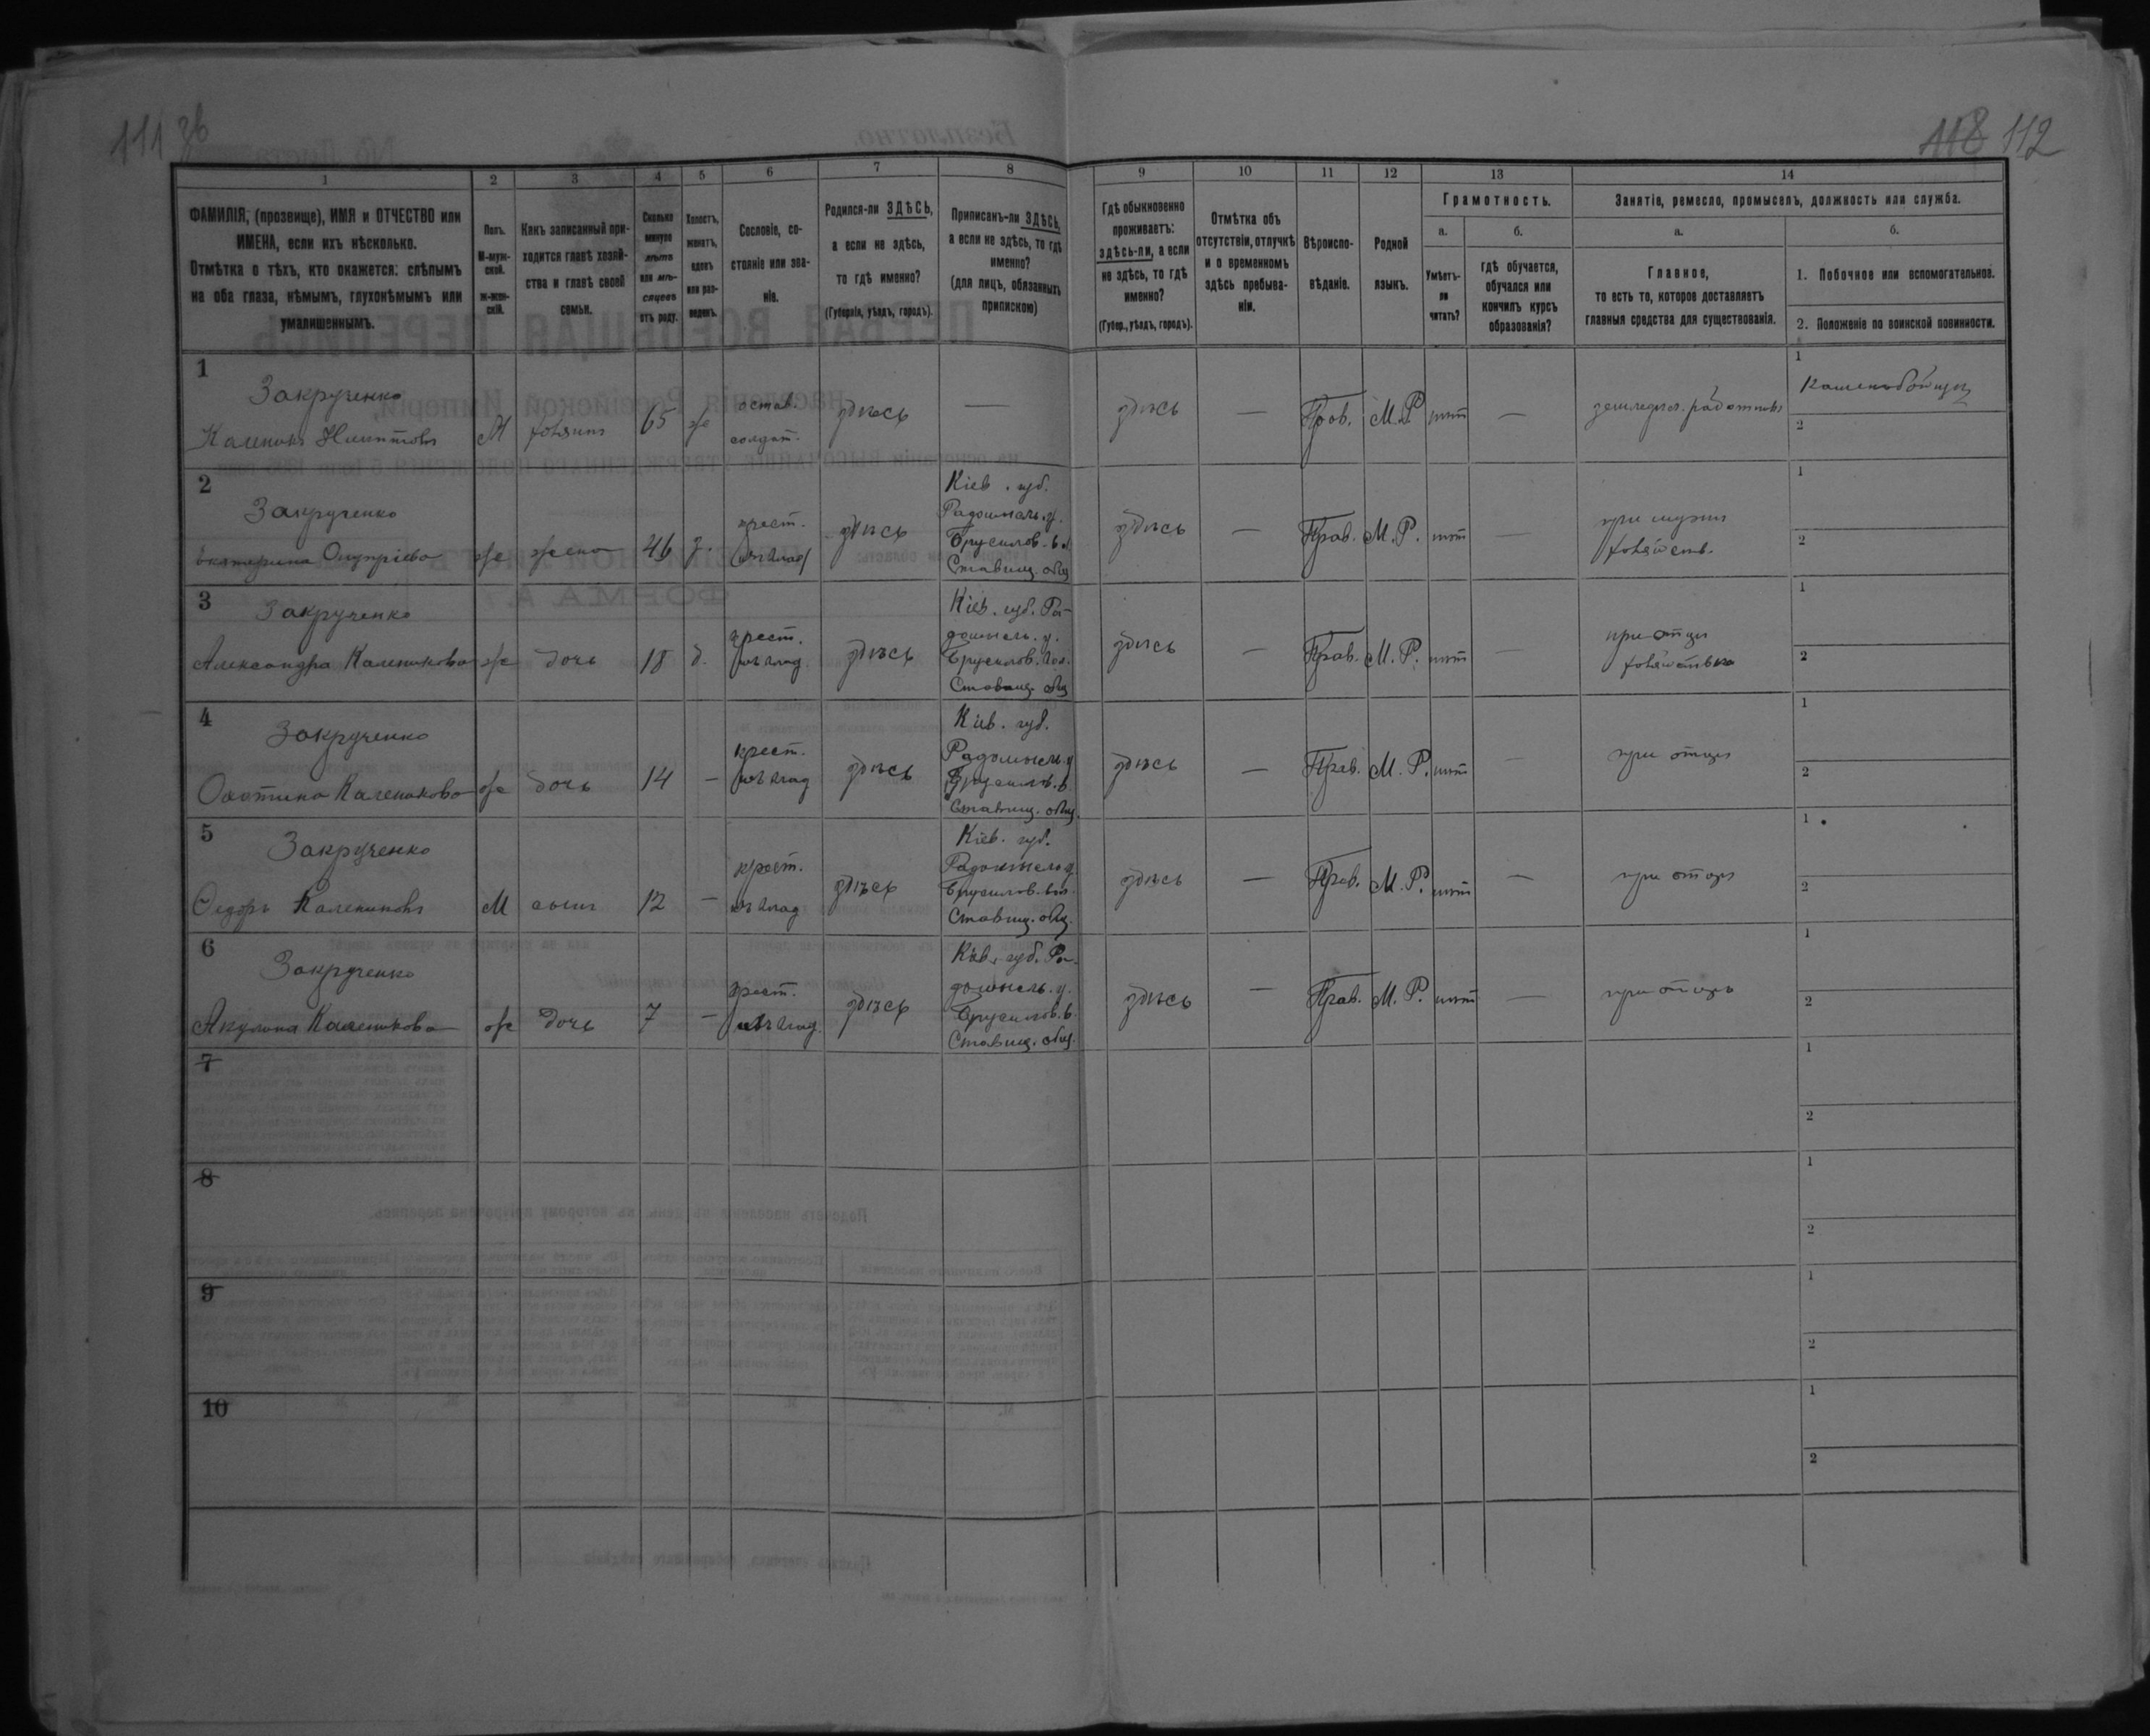 111 зв
118 112
1
2
3
4
5
6
7
8
9
10
11
12
13
14
ФАМИЛІЯ, (прозвище), ИМЯ и ОТЧЕСТВО или
ИМЕНА, если ихъ нѣсколько.
Отмѣтка о тѣхъ, кто окажется: слѣпымъ
на оба глаза, нѣмымъ, глухонѣмымъ или
умалишеннымъ.
Полъ.
М-муж-
ской.
ж-жен-
скій.
Какъ записанный при-
ходится главѣ хозяй-
ства и главѣ своей
семьи.
Сколько
минуло
лѣтъ
или мѣ-
сяцевъ
отъ роду.
Холостъ,
женатъ,
вдовъ
или раз-
веденъ.
Сословіе, со-
стояніе или зва-
ніе.
Родился-ли ЗДѢСЬ,
а если не здѣсь,
то гдѣ именно?
(Губернія, уѣздъ, городъ).
Приписанъ-ли ЗДѢСЬ,
а если не здѣсь, то гдѣ
именно?
(для лицъ, обязанныхъ
припискою)
Гдѣ обыкновенно
проживаетъ:
здѣсь-ли, а если
не здѣсь, то гдѣ
именно?
(Губер., уѣздъ, городъ).
Отмѣтка объ
отсутствіи, отлучкѣ
и о временномъ
здѣсь пребыва-
ніи.
Вѣроиспо-
вѣданіе.
Родной
языкъ.
Грамотность.
а.
Умѣетъ-
ли
читать?
б.
гдѣ обучается,
обучался или
кончилъ курсъ
образованія?
Занятіе, ремесло, промыселъ, должность или служба.
а.
Главное,
то есть то, которое доставляетъ
главныя средства для существованія.
б.
1. Побочное или вспомогательное.
2. Положеніе по воинской повинности.
1
Закрученко
Каленикъ
М
хозяинъ
65
ж
остав.
солдат.
здѣсь
—
здѣсь
—
Прав.
М.Р.
нѣт
—
земледѣл. работникъ
1
Каменобоецъ
2
2
Закрученко
Екатерина Онуфріева
ж
жена
46
з.
крест.
изъ влад
здѣсь
Кіев. губ.
Радомысль. у.
Брусилов. в.
Ставищ. общ
здѣсь
—
Прав.
М.Р.
нѣт
—
при мужѣ
хозяйств.
1
2
3
Закрученко
Александра Каленикова
ж
дочь
18
д.
крест.
изъ влад.
здѣсь
Кіев. губ. Ра-
домысль. у.
Брусилов. вол.
Ставищ. общ
здѣсь
—
Прав.
М.Р.
нѣт
—
при отцѣ
1
2
4
Закрученко
Каленикова
ж
дочь
14
—
крест.
изъ влад
здѣсь
Кіев. губ.
Радомысль. у
Брусилов. в.
Ставищ. общ.
здѣсь
—
Прав.
М.Р.
нѣт
—
при отцѣ
1
2
5
Закрученко
Федоръ Калениковъ
М
сынъ
12
—
крест.
изъ влад
здѣсь
Кіев. губ.
Радомысль у.
Брусилов. вол.
Ставищ. общ.
здѣсь
—
Прав.
М.Р.
нѣт
—
при отцѣ
1
2
6
Закрученко
Акулина Каленикова
ж
дочь
7
—
крест.
изъ влад.
здѣсь
Кіев. губ. Ра-
домысль. у.
Брусилов. в.
Ставищ. общ.
здѣсь
—
Прав.
М.Р.
нѣт
—
при отцѣ
1
2
7
1
2
8
1
2
9
1
2
10
1
2